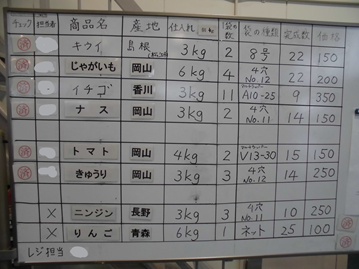 チェック 担当者 商品名 産地 仕入れ 袋の数 袋の種類 完成数 価格
済 キウイ 島根 3kg 2 8号 22 150
済 じゃがいも 岡山 6kg 4 4穴 No.12 22 200
済 イチゴ 香川 3kg 11 A10-25 9 350
済 ナス 岡山 3kg 2 4穴 No.11 14 150
済 トマト 岡山 4kg 2 V13-30 15 150
済 きゅうり 岡山 3kg 3 4穴 No.12 14 250
× ニンジン 長野 3kg 3 4穴 No.11 10 250
× りんご 青森 6kg 1 ネット 25 100
レジ担当